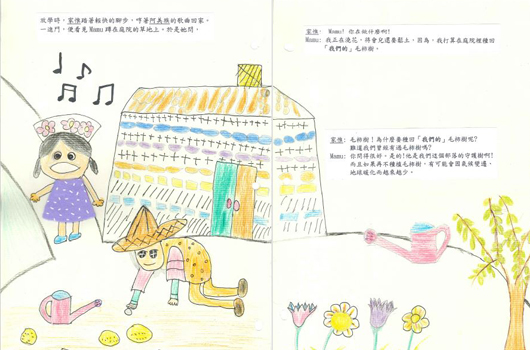 放學時，家惟踏著輕快的腳步，哼著阿美族的歌曲回家。
一進門，便看見 Momu 蹲在庭院的草地上。於是她問，
家惟: Momu! 你在做什麼啊!
Momu: 我正在澆花，將會兒還要翻土，因為，我打算在庭院裡種回
「我們的」毛柿樹。
家惟: 毛柿樹！為什麼要種回「我們的」毛柿樹呢?
難道我們曾經有過毛柿樹嗎?
Momu: 你問得很好。是的!他是我們這個部落的守護樹啊!
而且如果再不種植毛柿樹，有可能會因氣候變遷，
地球暖化而越來越少。